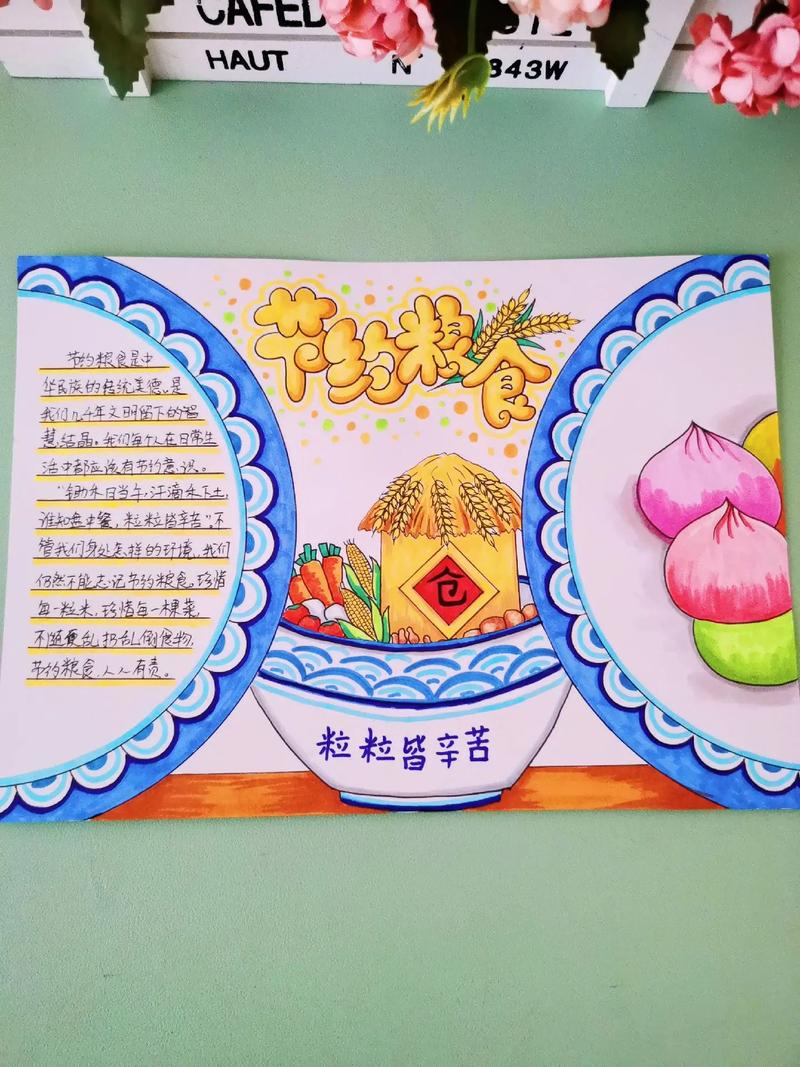 CAFED
HAUT N° 343W
节约粮食
节约粮食是中
华民族的传统美德。是
我们几千年文明留下的智
慧结晶。我们每个人在日常生
活中都应该有节约意识。
“锄禾日当午，汗滴禾下土，
谁知盘中餐，粒粒皆辛苦”不
管我们身处怎样的环境，我们
仍然不能忘记节约粮食。珍惜
每一粒米，珍惜每一棵菜，
不随便乱扔乱倒食物，
节约粮食，人人有责。
仓
粒粒皆辛苦